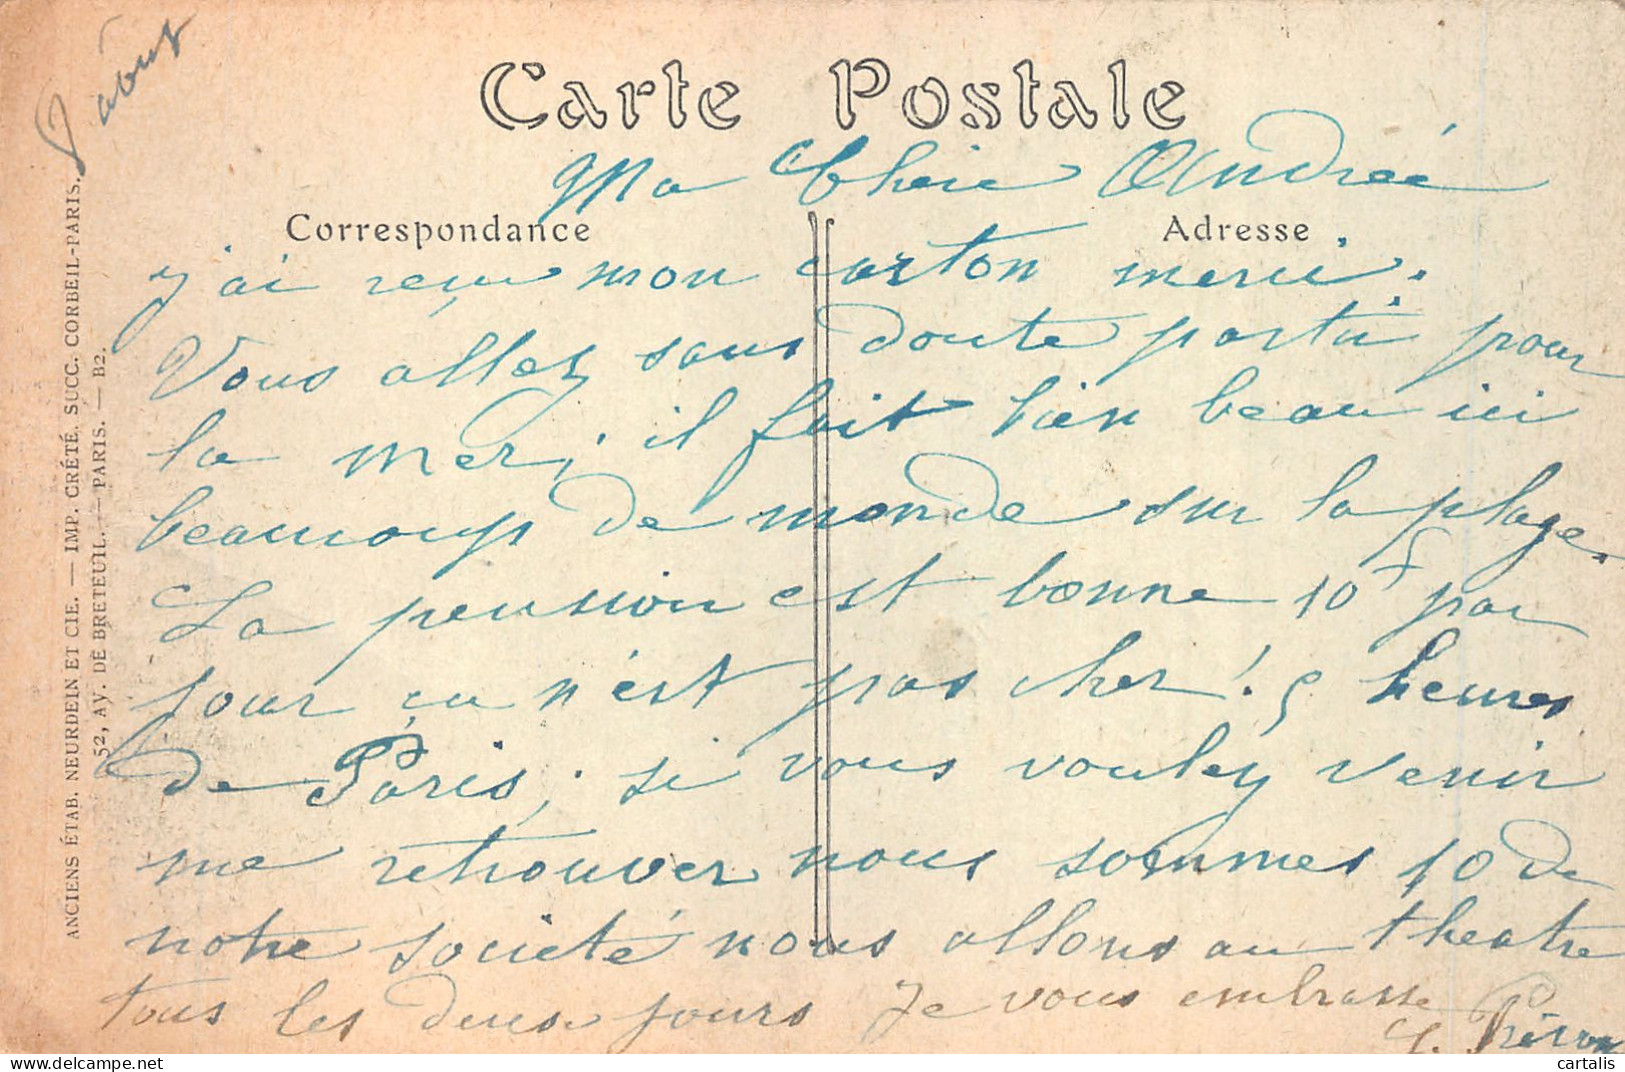 août
Carte Postale
Ma Chère Andrée
Correspondance
Adresse
j'ai reçu mon carton merci.
Vous allez sans doute partir pour
la mer; il fait bien beau ici
beaucoup de monde sur la plage.
La pension est bonne 10f par
jour ça n'est pas cher! 5 heures
de Paris; si vous vouley venir
me retrouver nous sommes 10 de
notre societé nous allons au theatre
tous les deux jours Je vous embrasse
ANCIENS ÉTAB. NEURDEIN ET CIE. — IMP. CRÉTÉ. SUCC. CORBEIL-PARIS.
52, AV. DE BRETEUIL. — PARIS. — B2.
cartalis